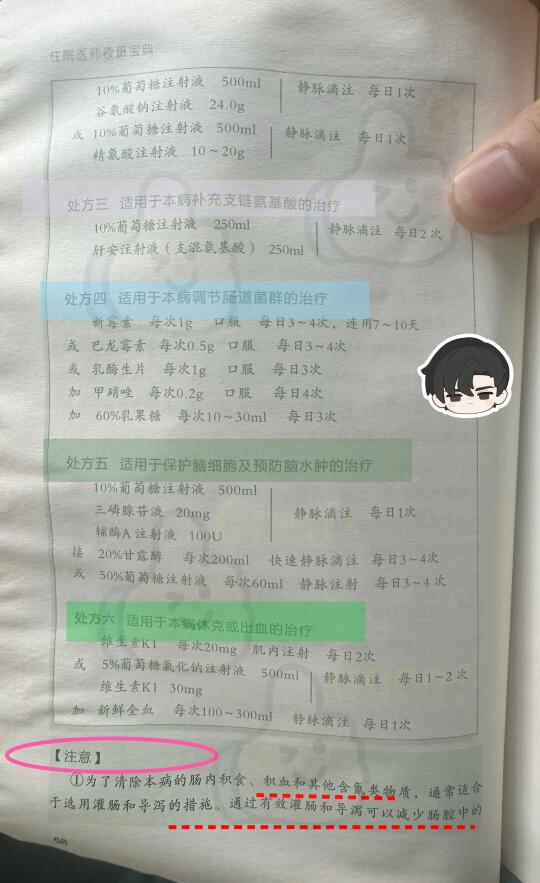 住院医师夜班宝典
10%葡萄糖注射液 500ml
谷氨酸钠注射液 24.0g
静脉滴注 每日1次
或 10%葡萄糖注射液 500ml
精氨酸注射液 10~20g
静脉滴注 每日1次
处方三 适用于本病补充支链氨基酸的治疗
10%葡萄糖注射液 250ml
肝安注射液(支混氨基酸) 250ml
静脉滴注 每日2次
处方四 适用于本病调节肠道菌群的治疗
新霉素 每次1g 口服 每日3~4次,连用7~10天
或 巴龙霉素 每次0.5g 口服 每日3~4次
或 乳酶生片 每次1g 口服 每日3次
加 甲硝唑 每次0.2g 口服 每日4次
加 60%乳果糖 每次10~30ml 每日3次
处方五 适用于保护脑细胞及预防脑水肿的治疗
10%葡萄糖注射液 500ml
三磷腺苷液 20mg
辅酶A注射液 100U
静脉滴注 每日1次
接 20%甘露醇 每次200ml 快速静脉滴注 每日3~4次
或 50%葡萄糖注射液 每次60ml 静脉注射 每日3~4次
处方六 适用于本病休克或出血的治疗
维生素K1 每次20mg 肌内注射 每日2次
或 5%葡萄糖氯化钠注射液 500ml
维生素K1 30mg
静脉滴注 每日1~2次
加 新鲜全血 每次100~300ml 静脉滴注 每日1次
【注意】
①为了清除本病的肠内积食、积血和其他含氮类物质,通常适合
于选用灌肠和导泻的措施。通过有效灌肠和导泻可以减少肠腔中的
58